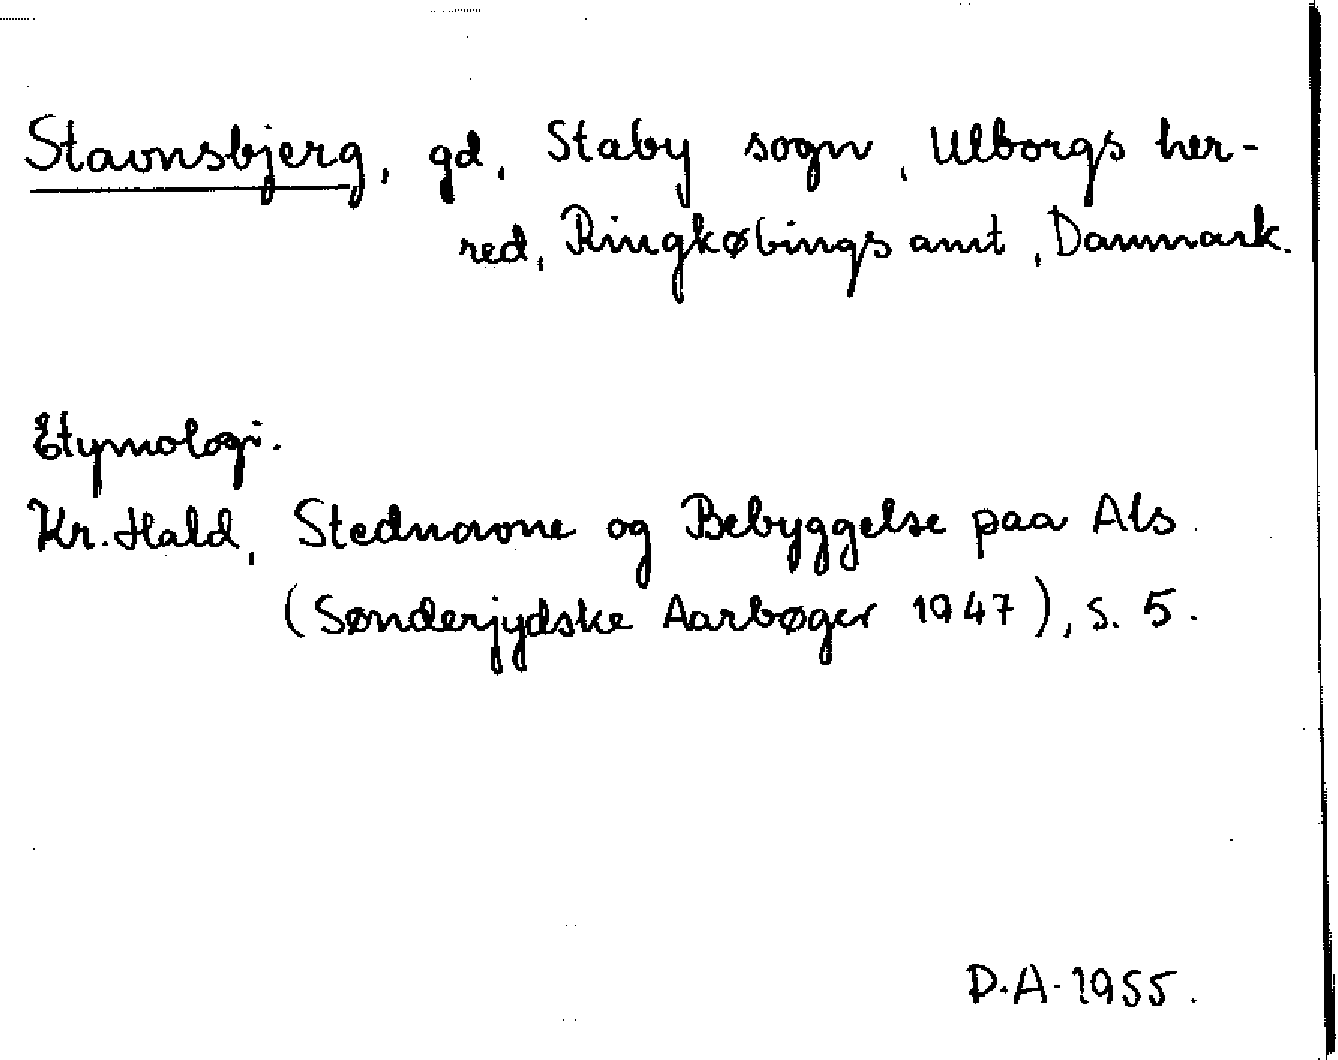 Stavnsbjerg, gd, Staby sogn, Ulborgs her-
red, Ringkøbings amt, Danmark.
Etymologi.
Kr. Hald, Stednavne og Bebyggelse paa Als.
(Sønderjydske Aarbøger 1947), s. 5.
D.A. 1955.